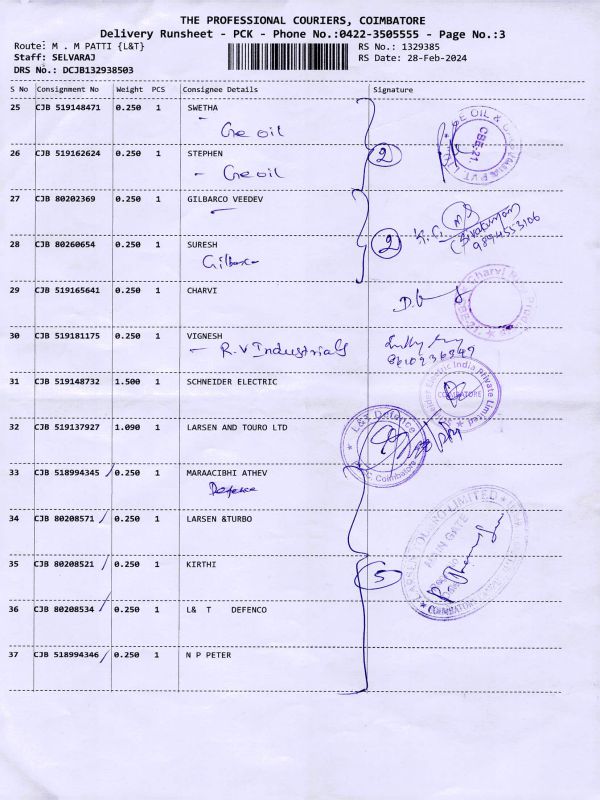 THE PROFESSIONAL COURIERS, COIMBATORE
Delivery Runsheet - PCK - Phone No.:0422-3505555 - Page No.:3
Route: M . M PATTI {L&T} RS No.: 1329385
Staff: SELVARAJ RS Date: 28-Feb-2024
DRS No.: DCJB132938503
S No Consignment No Weight PCS Consignee Details Signature
25 CJB 519148471 0.250 1 SWETHA
- Gre oil
26 CJB 519162624 0.250 1 STEPHEN 2
- Gre oil
27 CJB 80202369 0.250 1 GILBARCO VEEDEV
28 CJB 80260654 0.250 1 SURESH 2
Gilbarco
9894553106
29 CJB 519165641 0.250 1 CHARVI
30 CJB 519181175 0.250 1 VIGNESH
- R.V Industrials
31 CJB 519148732 1.500 1 SCHNEIDER ELECTRIC
COIMBATORE
32 CJB 519137927 1.090 1 LARSEN AND TOURO LTD
L&T Defence
Coimbatore
33 CJB 518994345 / 0.250 1 MARAACIBHI ATHEV
Defence
34 CJB 80208571 / 0.250 1 LARSEN &TURBO
MAIN GATE
35 CJB 80208521 / 0.250 1 KIRTHI 5
36 CJB 80208534 / 0.250 1 L& T DEFENCO
37 CJB 518994346 / 0.250 1 N P PETER